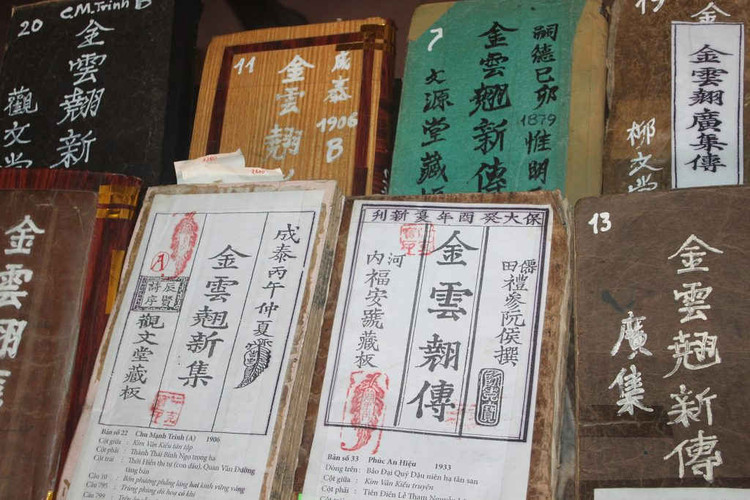 20
C.M.Trinh B
金雲翹新
觀文堂
11
成泰
1906
B
金雲翹
7
嗣德己卯
1879
惟明
金雲翹新傳
文源堂藏板
19
金
金雲翹廣集傳
柳文堂
金雲翹
成泰丙午仲夏
金雲翹新集
A
觀文堂藏板
Bản số 22 Chu Mạnh Trinh (A) 1906
Cột giữa : Kim Vân Kiều tân tập
Cột phải : Thành Thái Bính Ngọ trọng hạ
Cột trái
保大癸酉年夏新刊
僊田禮參阮侯撰
金雲翹傳
河内福安號藏板
Bản số 33 Phúc An Hiệu 1933
Dòng trên : Bảo Đại Quý Dậu niên hạ tân san
Cột giữa : Kim Vân Kiều truyện
Cột phải : Tiên Điền Lễ Tham
13
金雲翹新傳
廣集